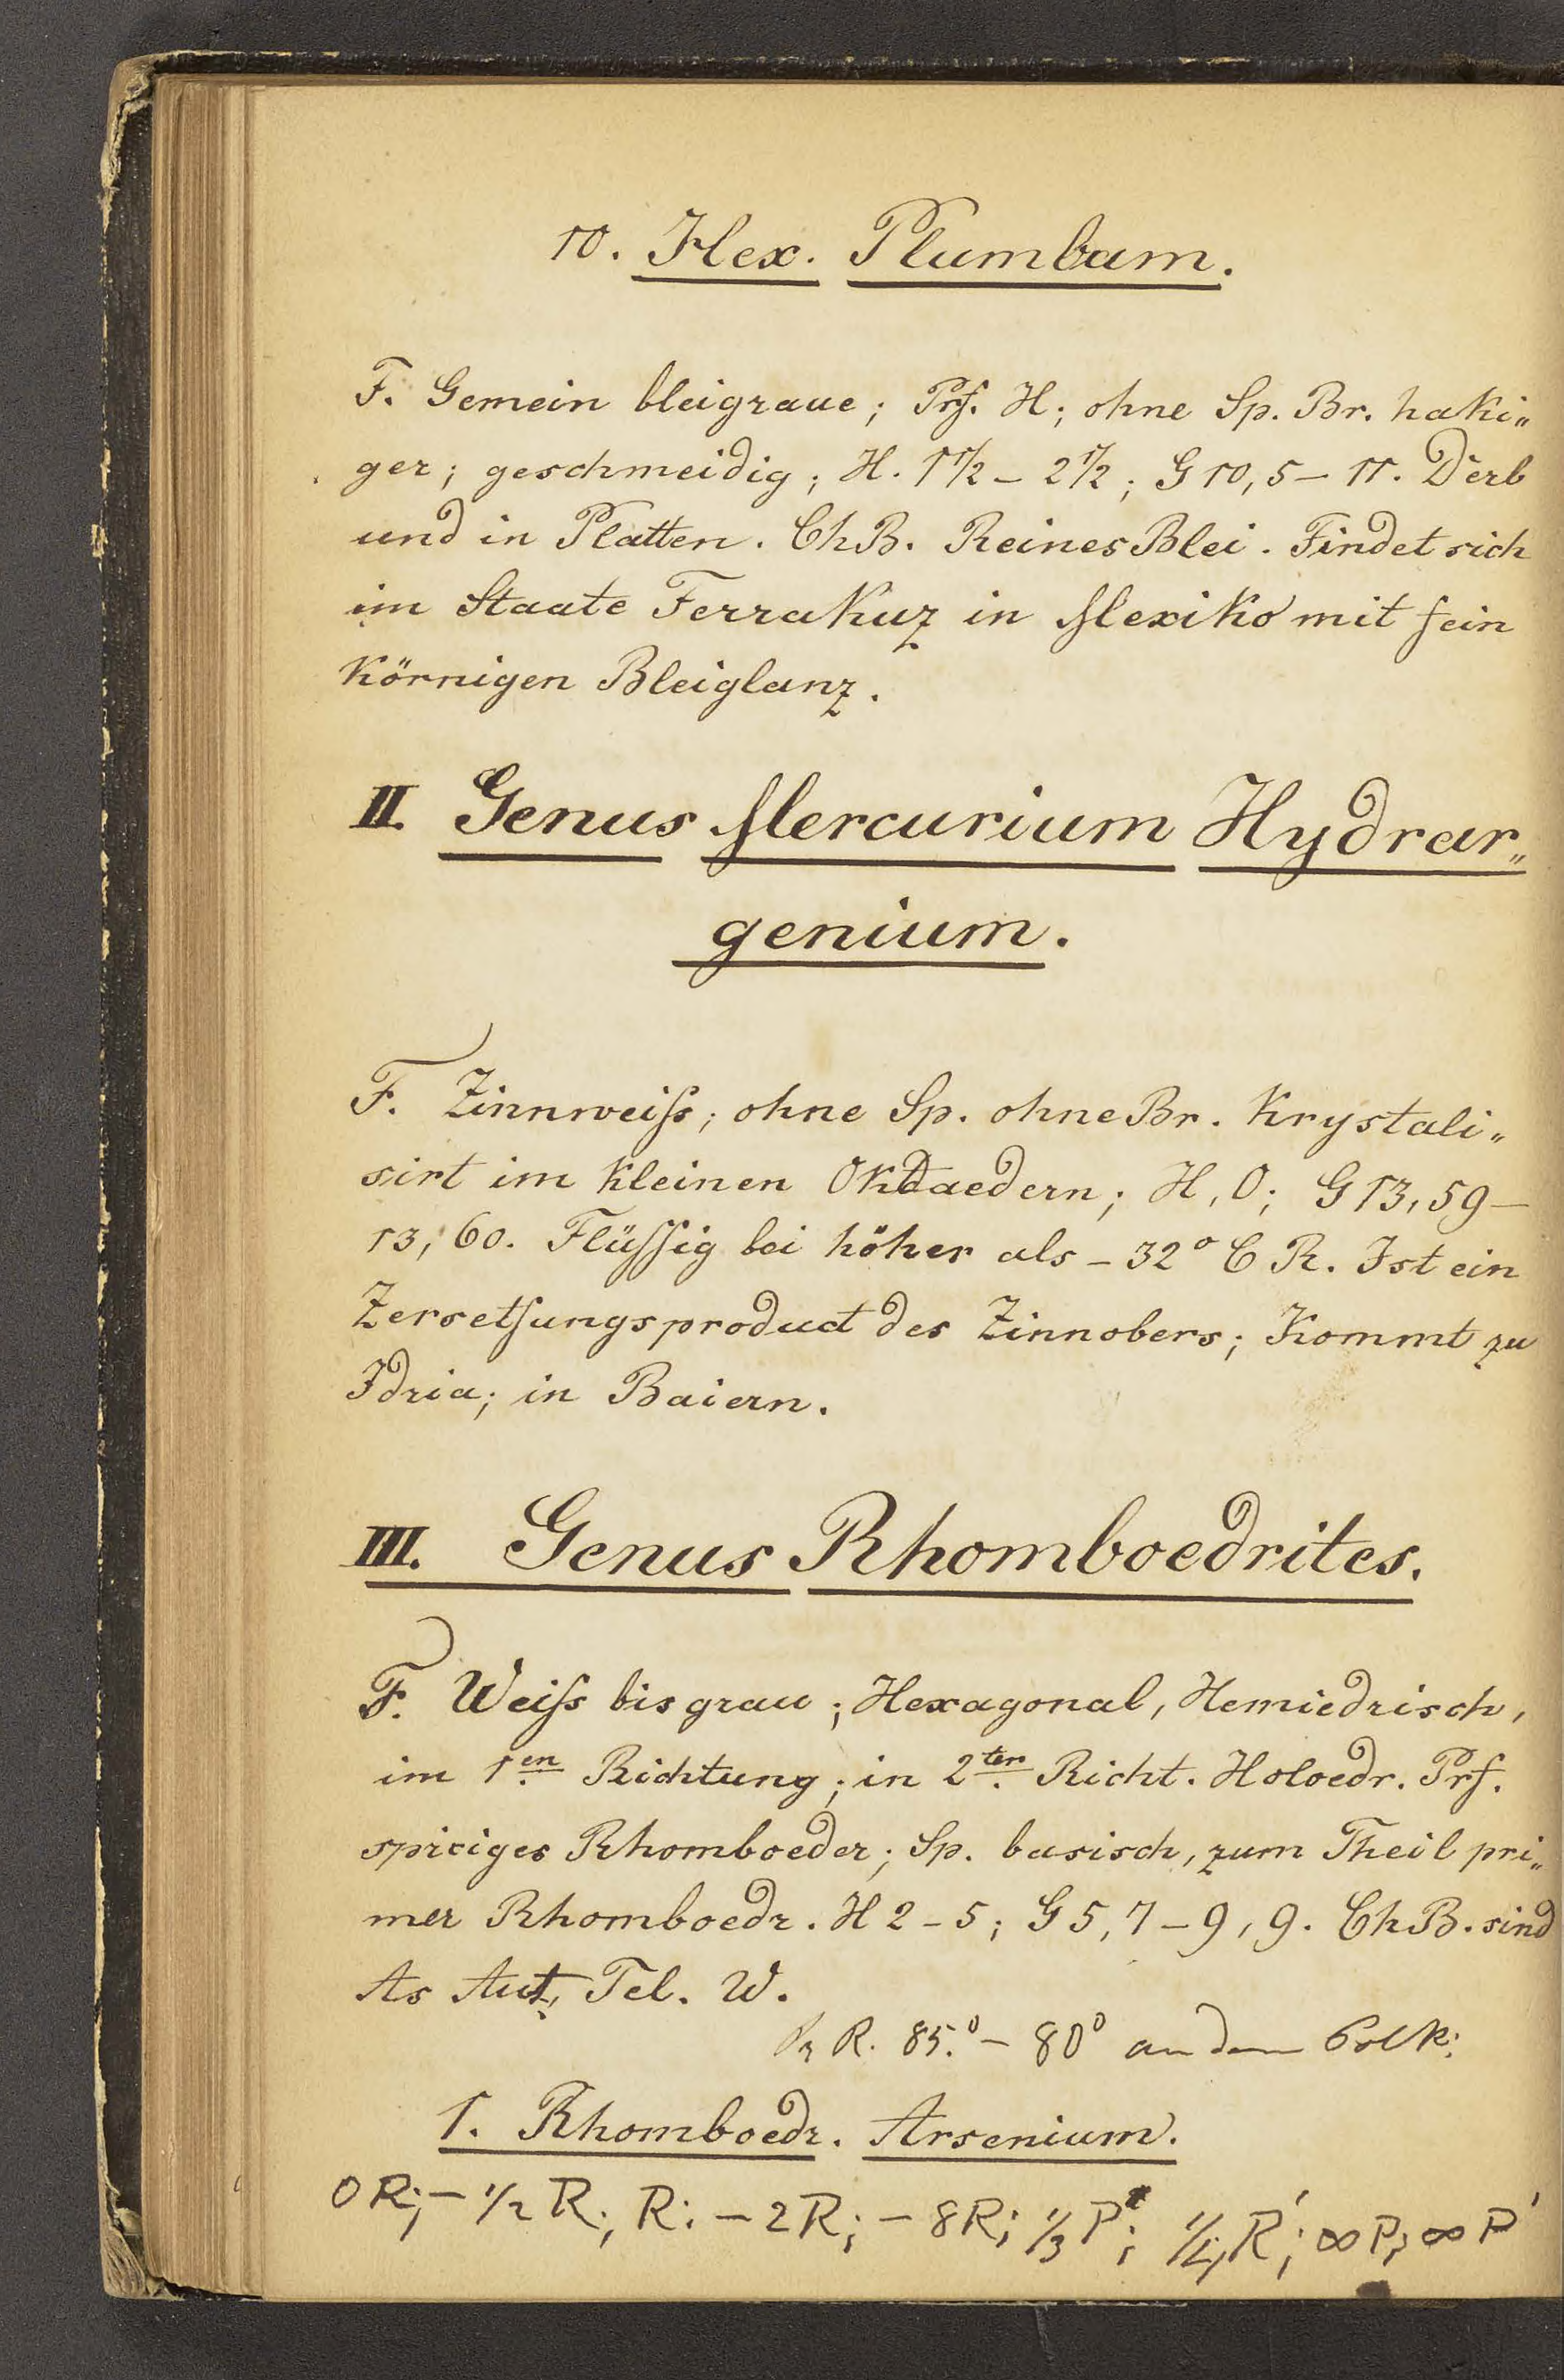 10. Hex. Plumbum.
F. Gemein bleigraue; Prf. H; ohne Sp. Br. haki„
ger; geschmeidig; H. 1 1/2 – 2 1/2; G 10,5 – 11. Derb
und in Platten. Ch B. Reines Blei. Findet sich
im Staate Ferrakuz in Mexiko mit fein
körnigen Bleiglanz.
II. Genus Mercurium Hydrar„
genium.
F. Zinnweiß; ohne Sp. ohne Br. Krystali„
sirt im kleinen Oktaedern; H, 0; G 13,59 –
13,60. Flüssig bei höher als – 32° C R. Ist ein
Zersetsungsproduct des Zinnobers; Kommt zu
Idria; in Baiern.
III. Genus Rhomboedrites.
F. Weiß bis grau; Hexagonal, Hemiedrisch,
im 1en Richtung; in 2ter Richt. Holoedr. Prf.
spiciges Rhomboeder; Sp. basisch, zum Theil pri„
mer Rhomboedr. H 2 – 5; G 5,7 – 9,9. Ch B. sind
As Tel. W.
R. 85.° – 80° an den Polk:
1. Rhomboedr. Arsenium.
0R; – 1/2 R; R; – 2R; – 8R; 1/3 P; 1/4 R'; ∞P; ∞P'